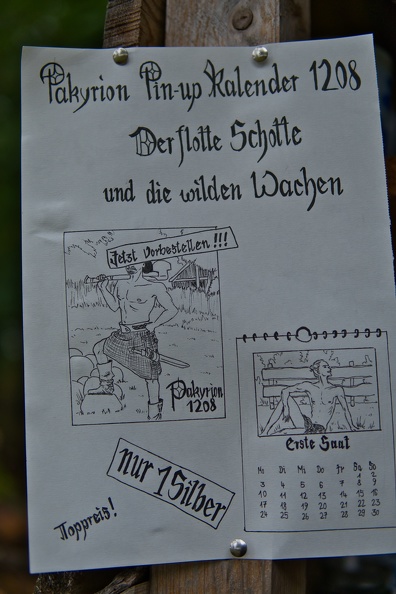 Pakyrion Pin-up Kalender 1208
Der flotte Schotte
und die wilden Wachen
Jetzt vorbestellen!!!
Pakyrion
1208
Erste Saat
Mo Di Mi Do Fr Sa So
1 2
3 4 5 6 7 8 9
10 11 12 13 14 15 16
17 18 19 20 21 22 23
24 25 26 27 28 29 30
nur 1 Silber
Toppreis!